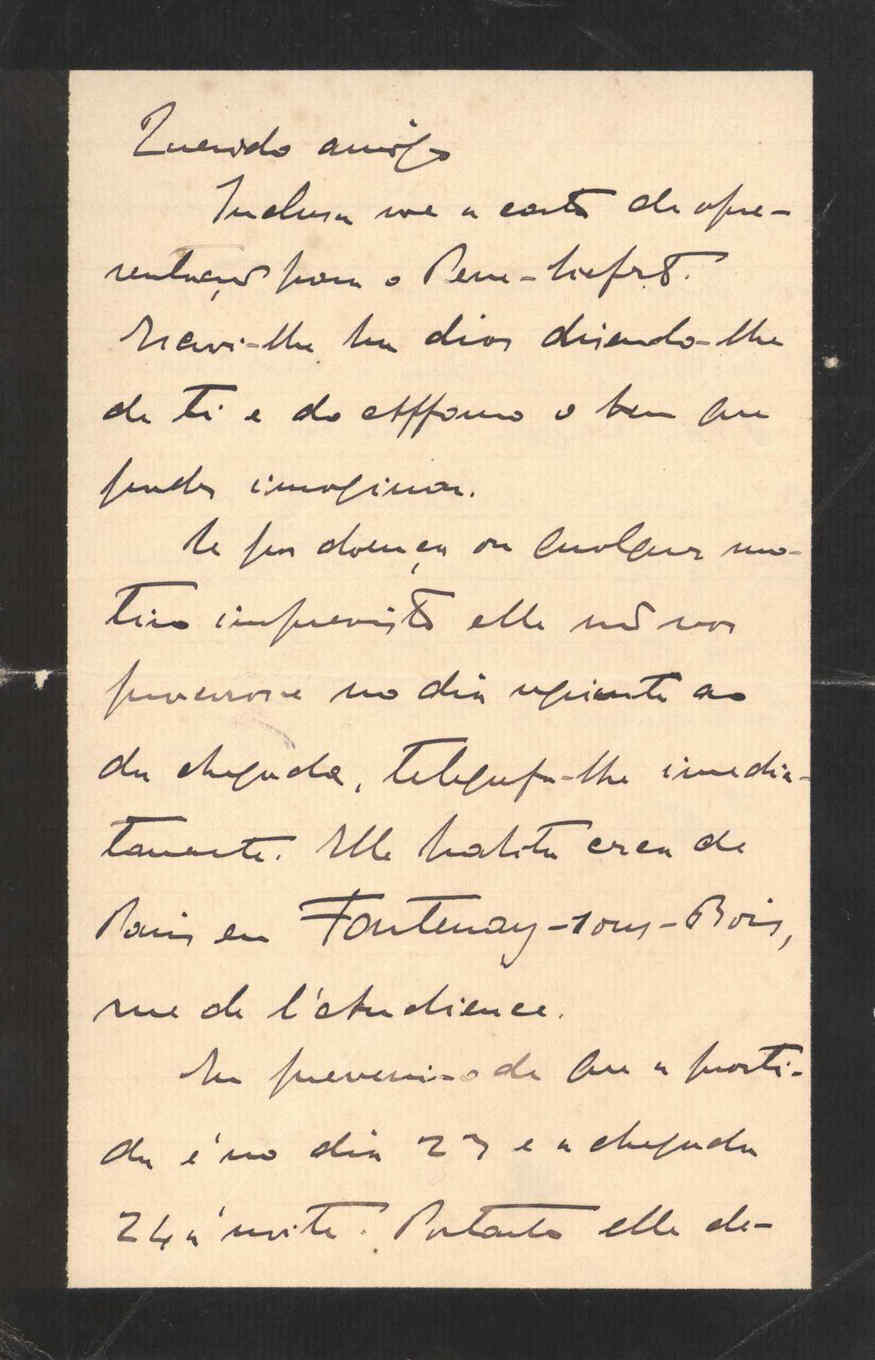 Querido amigo
Inclusa vae a carta de apre-
sentação para o Pene-Siefert.
Escrevi-lhe ha dias dizendo-lhe
de ti e do Affonso o bem que
pódes imaginar.
Se por doença ou qualquer mo-
tivo imprevisto elle não vos
procurasse no dia seguinte ao
da chegada, telegrafa-lhe imedia-
tamente. Elle habita cerca de
Paris em Fontenay-sous-Bois,
rue de l'Audience.
Eu preveni-o de que a parti-
da é no dia 23 e a chegada
24 á noite. Portanto elle de-